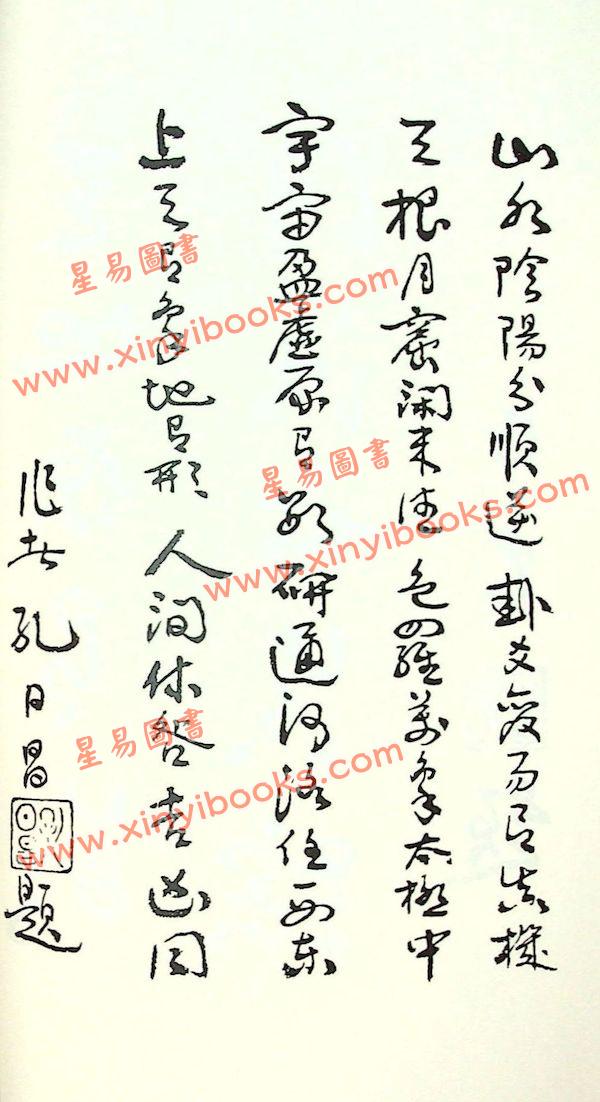 山水陰陽分順逆 卦爻變易有真機
天根月窟閒來往 包羅萬象太極中
宇宙盈虛原有數 研通河洛任西東
上天有象地有形 人間休咎吉凶同
作者 孔日昌 題
星易圖書
www.xinyibooks.com
星易圖書
www.xinyibooks.com
星易圖書
www.xinyibooks.com